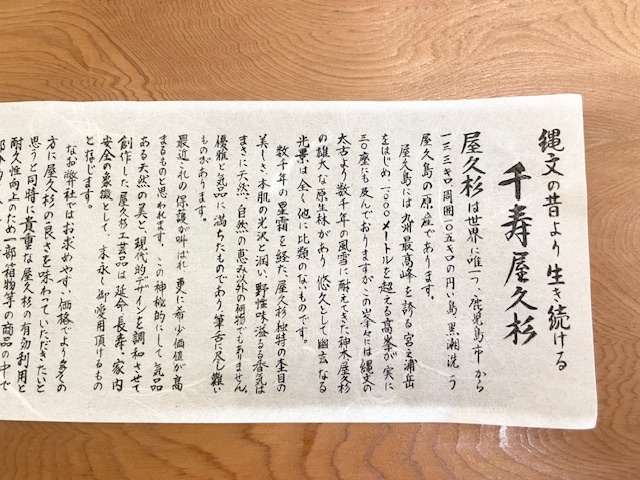 縄文の昔より生き続ける
千寿屋久杉
屋久杉は世界に唯一つ、鹿児島市から
一三三キロ周囲一〇五キロの円い島黒潮洗う
屋久島の原産であります。
屋久島には九州最高峰を誇る宮之浦岳
をはじめ、一、〇〇〇メートルを超える高峯が実に
三〇座にも及んでおりますがこの峯々には縄文の
太古より数千年の風雪に耐えてきた神木屋久杉
の雄大な原生林があり悠久として幽玄なる
光景は全く他に比類のないものです。
数千年の星霜を経た、屋久杉独特の杢目の
美しさ、木肌の光沢と潤い、野性味溢るる香気は
まさに天然、自然の恵み以外の何物でもありません。
優雅と気品に満ちたものであり筆舌に尽し難い
ものがあります。
最近これの保護が叫ばれ更に希少価値が高
まるものと思われます。この神秘的にして気品
ある天然の美と、現代的デザインを調和させて
創作した屋久杉工芸品は延命長寿、家内
安全の象徴として、末永く御愛用頂けるもの
と存じます。
なお弊社ではお求めやすい価格でより多くの
方に屋久杉の良さを味わっていただきたいと
思うと同時に貴重な屋久杉の有効利用と
耐久性向上のため一部箱物等の商品の中で